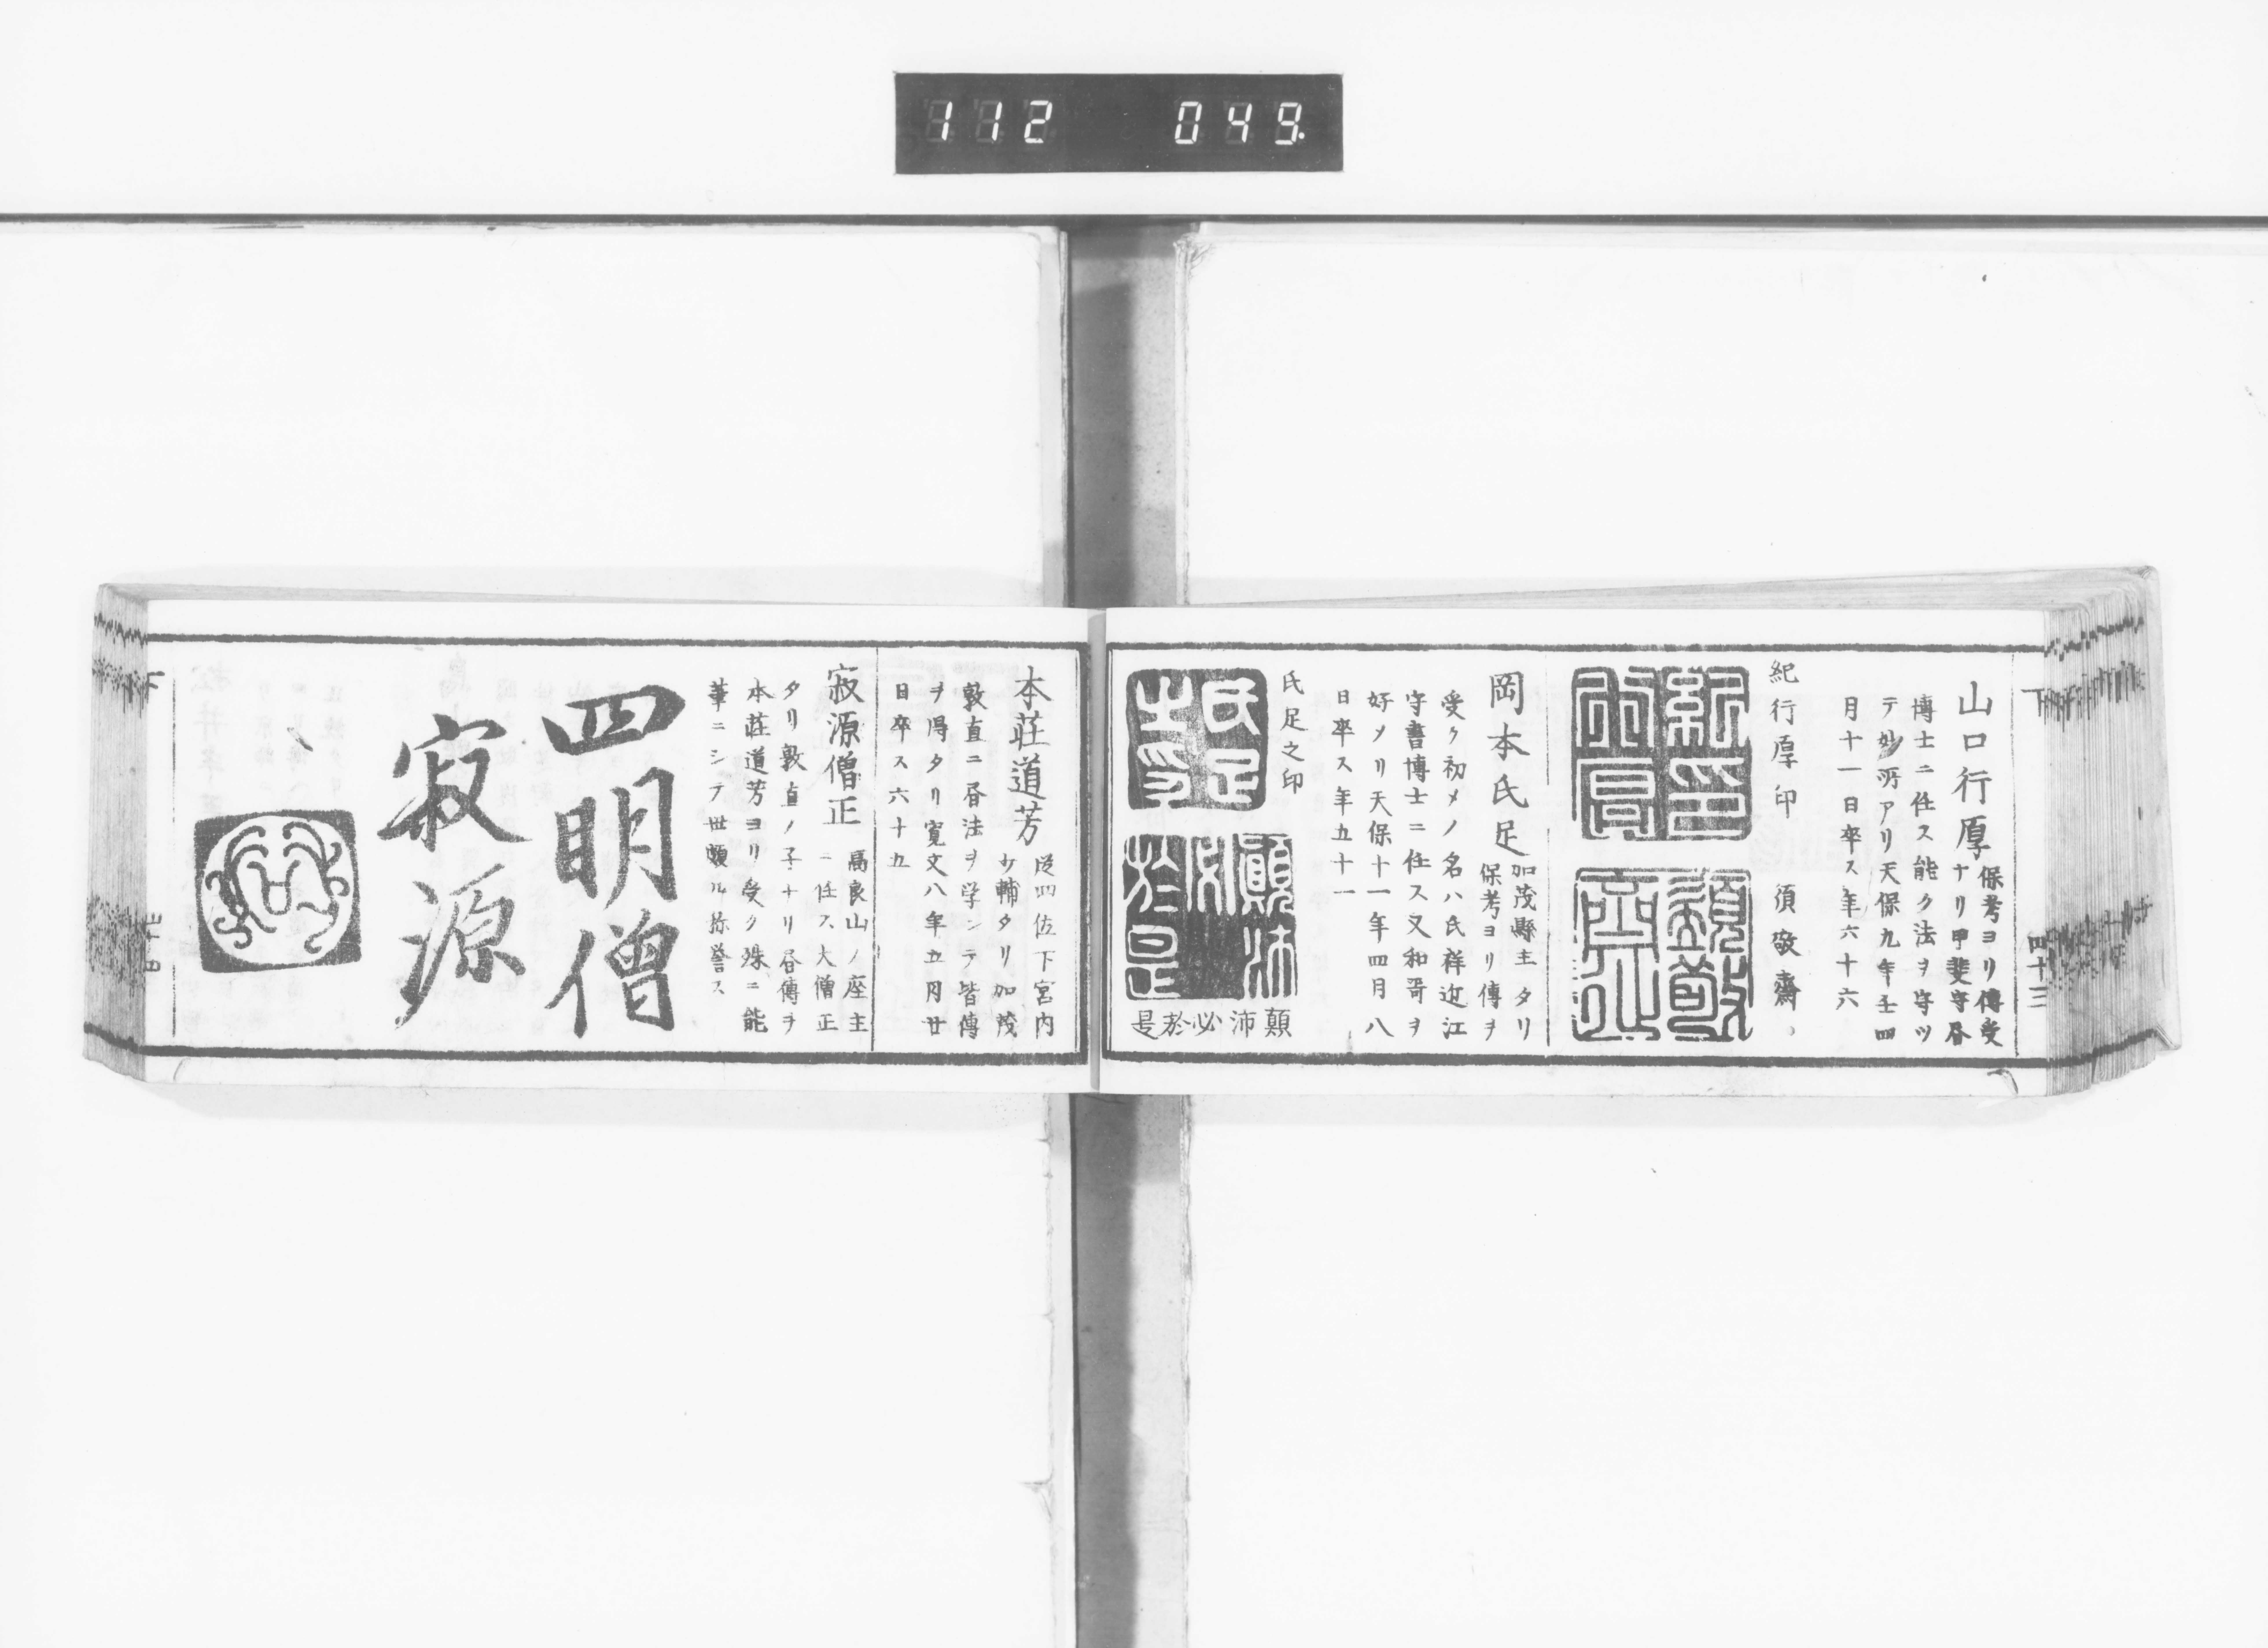 112 049
山口行厚
保考ヨリ傳受
ナリ甲斐守昼
博士ニ任ス能ク法ヲ守ツ
テ妙所アリ天保九年壬四
月十一日卒ス年六十六
紀行厚印
須敬齋
岡本氏足
加茂縣主タリ
保考ヨリ傳ヲ
受ク初メノ名ハ氏祥近江
守書博士ニ任ス又和哥ヲ
好メリ天保十一年四月八
日卒ス年五十一
氏足之印
顛沛必於是
下
四十三
本荘道芳
従四位下宮内
少輔タリ加茂
敦直ニ昼法ヲ学ンテ皆傳
ヲ得タリ寛文八年五月廿
日卒ス六十五
寂源僧正
高良山ノ座主
ニ任ス大僧正
タリ敦直ノ子ナリ昼傳ヲ
本荘道芳ヨリ受ク殊ニ能
筆ニシテ世頗ル称誉ス
四明僧
寂源